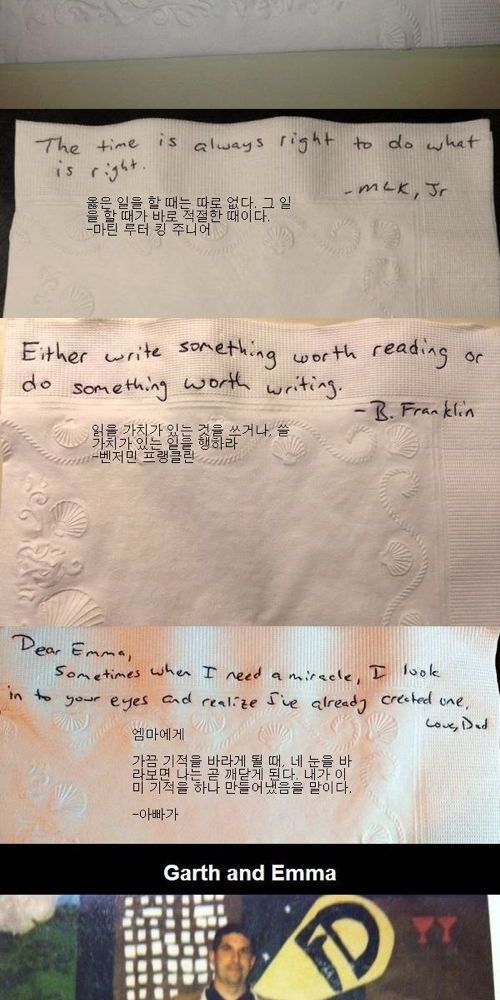 The time is always right to do what
is right.
-MLK, Jr
옳은 일을 할 때는 따로 없다. 그 일
을 할 때가 바로 적절한 때이다.
-마틴 루터 킹 주니어
Either write something worth reading or
do something worth writing.
-B. Franklin
읽을 가치가 있는 것을 쓰거나, 쓸
가치가 있는 일을 행하라
-벤저민 프랭클린
Dear Emma,
Sometimes when I need a miracle, I look
in to your eyes and realize I've already created one.
Love, Dad
엠마에게
가끔 기적을 바라게 될 때, 네 눈을 바
라보면 나는 곧 깨닫게 된다. 내가 이
미 기적을 하나 만들어냈음을 말이다.
-아빠가
Garth and Emma